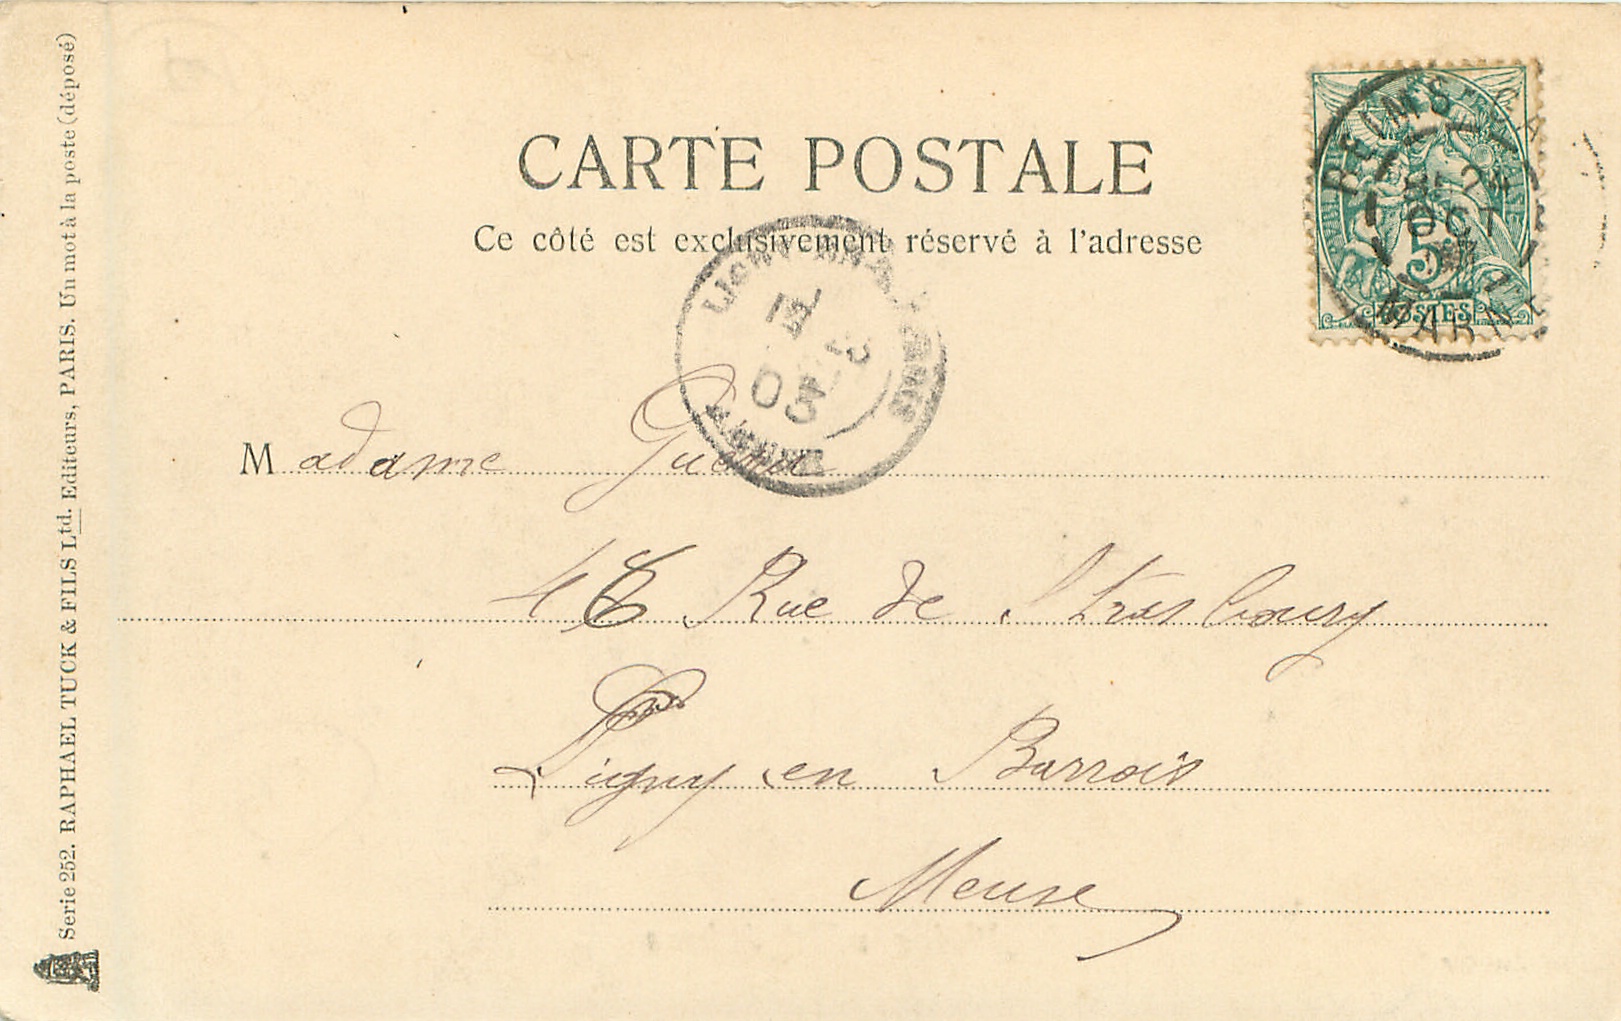 CARTE POSTALE
Ce côté est exclusivement réservé à l'adresse
REIMS
OCT
5
POSTES
MARNE
LIGNY
03
Madame
46 Rue de Strasbourg
Ligny en Barrois
Meuse
Serie 252. RAPHAEL TUCK & FILS Ltd. Editeurs, PARIS. Un mot à la poste (déposé)